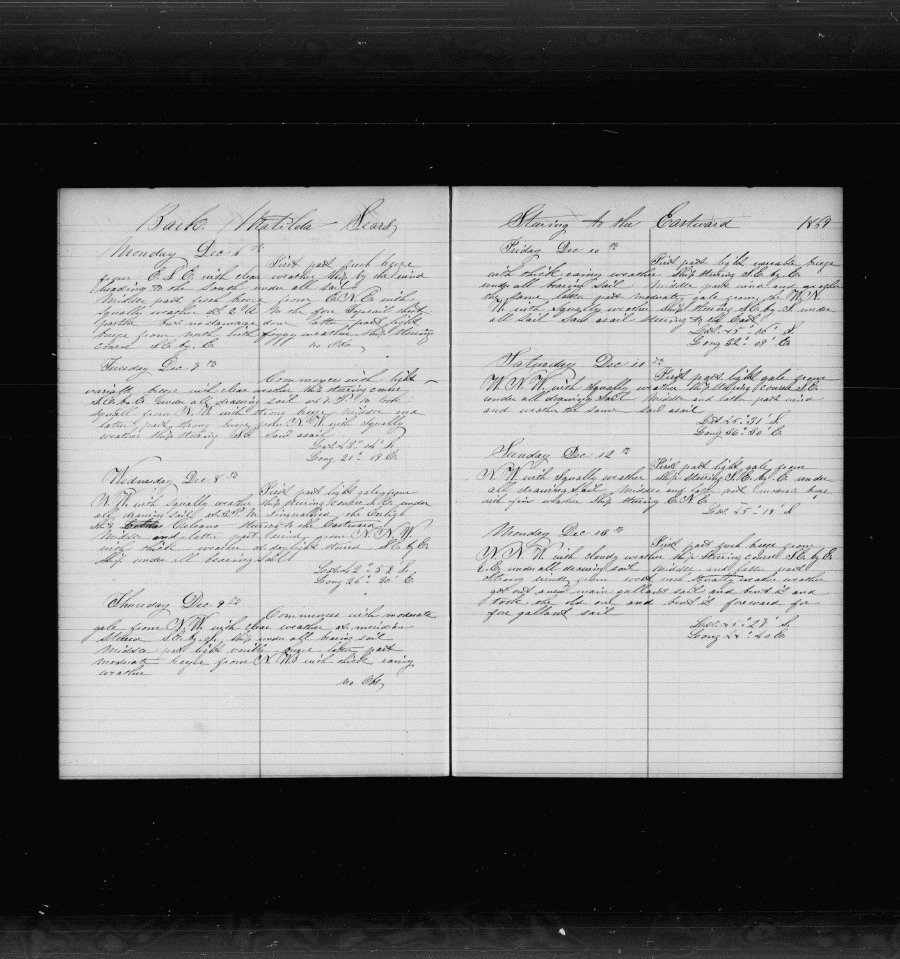 Bark Matilda Sears
Monday Dec 6th
First part fresh breeze
from E.S.E. with clear weather ship by the wind
heading to the South under all sail
Middle part fresh breeze from E.N.E. with
squally weather at 2 A M the fore topsail sheet
parted no damage done latter part light
breeze from north with foggy weather ship steering
course S.E. by E. no Obs
Tuesday Dec 7th
Commences with light
variable breeze with clear weather ship steering course
S.E. by E. under all drawing sail at 7 P. M took
squall from N. W. with strong breeze middle and
latter part strong breeze from N. W. with squally
weather ship steering S.E. saw a sail
Lat 43° 04' S.
Long 21° 19 E.
Wednesday Dec 8th
First part light gale from
N.W. with squally weather ship steering course S.E. under
all drawing sail at P. M. signalised the English
ship Oceano steering to the Eastward
Middle and latter part wind from N.N.W.
with thick weather at daylight steered S.E. by E.
ship under all bearing sail
Lat 42° 58 S.
Long 26° 30' E.
Thursday Dec 9th
Commences with moderate
gale from N.W. with clear weather at meridian
steered S.E. by S. ship under all bearing sail
Middle part light breeze latter part
moderate breeze from N. W. with thick rainy
weather
no Obs
Staring to the Eastward 1869
Friday Dec 10th
First part light variable breeze
with thick rainy weather Ship steering S.E. by E.
under all bearing sail Middle part wind and weather
the same latter part moderate gale from the W.N.
W. with squally weather ship steering S.E. by S. under
all sail Saw a sail steering to the East
Lat 45° 06' S.
Long 32° 09' E.
Saturday Dec 11th
First part light gale from
W.N.W. with squally weather ship steering course S.E.
under all drawing sail Middle and latter part wind
and weather the same saw a sail
Lat 45° 31' S
Long 36° 30' E.
Sunday Dec 12th
First part light gale from
N.W. with squally weather ship steering S.E. by E. under
all drawing sail Middle and latter part moderate breeze
and fine weather ship steering E.N.E.
Lat 45° 18' S
Monday Dec 13th
First part fresh breeze from
N.N.W. with cloudy weather ship steering course S.E. by E.
under all drawing sail Middle and latter part
strong winds from west with squally weather
got out a new main gallant sail and bent it and
took the old one and bent it forward for
fore gallant sail